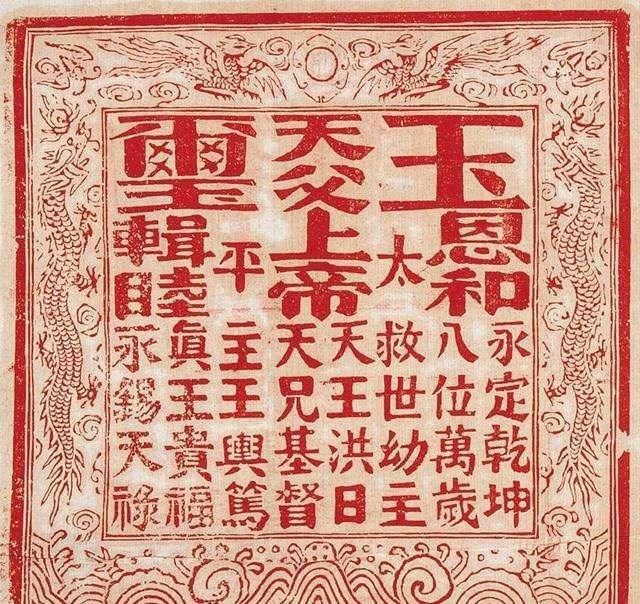 玉
天父上帝
璽
恩和
太
平
輯睦
永定乾坤
八位萬歲
救世幼主
天王洪日
天兄基督
主王輿篤
眞王貴福
永錫天祿